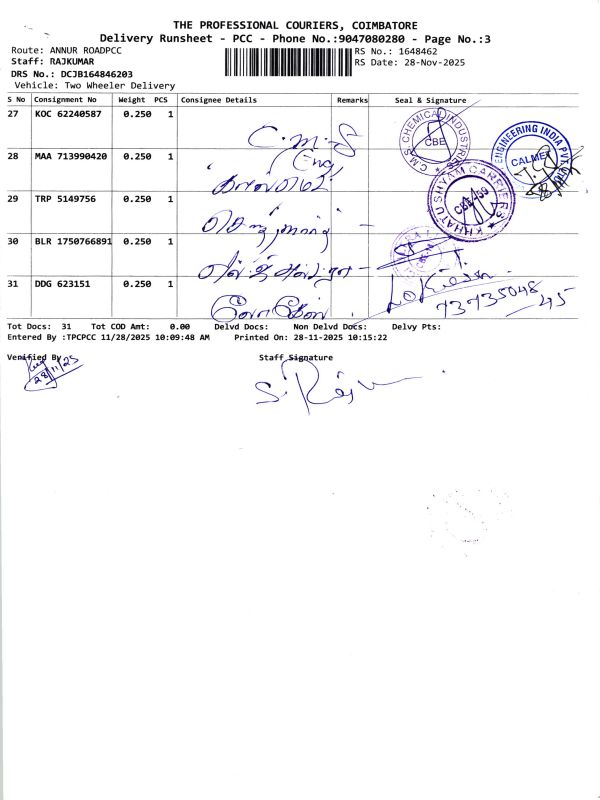 THE PROFESSIONAL COURIERS, COIMBATORE
Delivery Runsheet - PCC - Phone No.:9047080280 - Page No.:3
Route: ANNUR ROADPCC
RS No.: 1648462
Staff: RAJKUMAR
RS Date: 28-Nov-2025
DRS No.: DCJB164846203
Vehicle: Two Wheeler Delivery
S No Consignment No Weight PCS Consignee Details Remarks Seal & Signature
27 KOC 62240587 0.250 1
C.M.S
C.M.S CHEMICAL INDUSTRIES
CBE
28 MAA 713990420 0.250 1
Eng
ENGINEERING INDIA PVT
CALMET
29 TRP 5149756 0.250 1
KHHATU SHYAM CARRIERS
CBE-459
30 BLR 1750766891 0.250 1
31 DDG 623151 0.250 1
73735048
45
Tot Docs: 31 Tot COD Amt: 0.00 Delvd Docs: Non Delvd Docs: Delvy Pts:
Entered By :TPCPCC 11/28/2025 10:09:48 AM Printed On: 28-11-2025 10:15:22
Verified By
Staff Signature
28/11/25
S. Raj